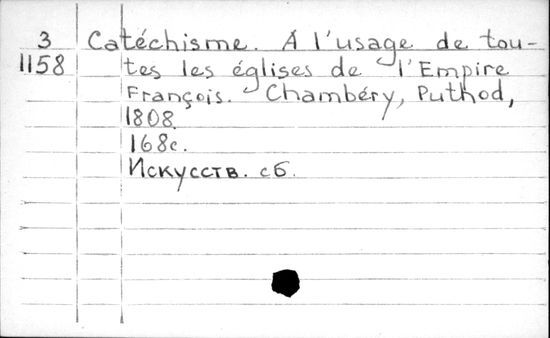 3 Catéchisme. A l'usage de tou-
1158 tes les églises de l'Empire
François. Chambéry, Puthod,
1808.
168с.
Искусств. сб.